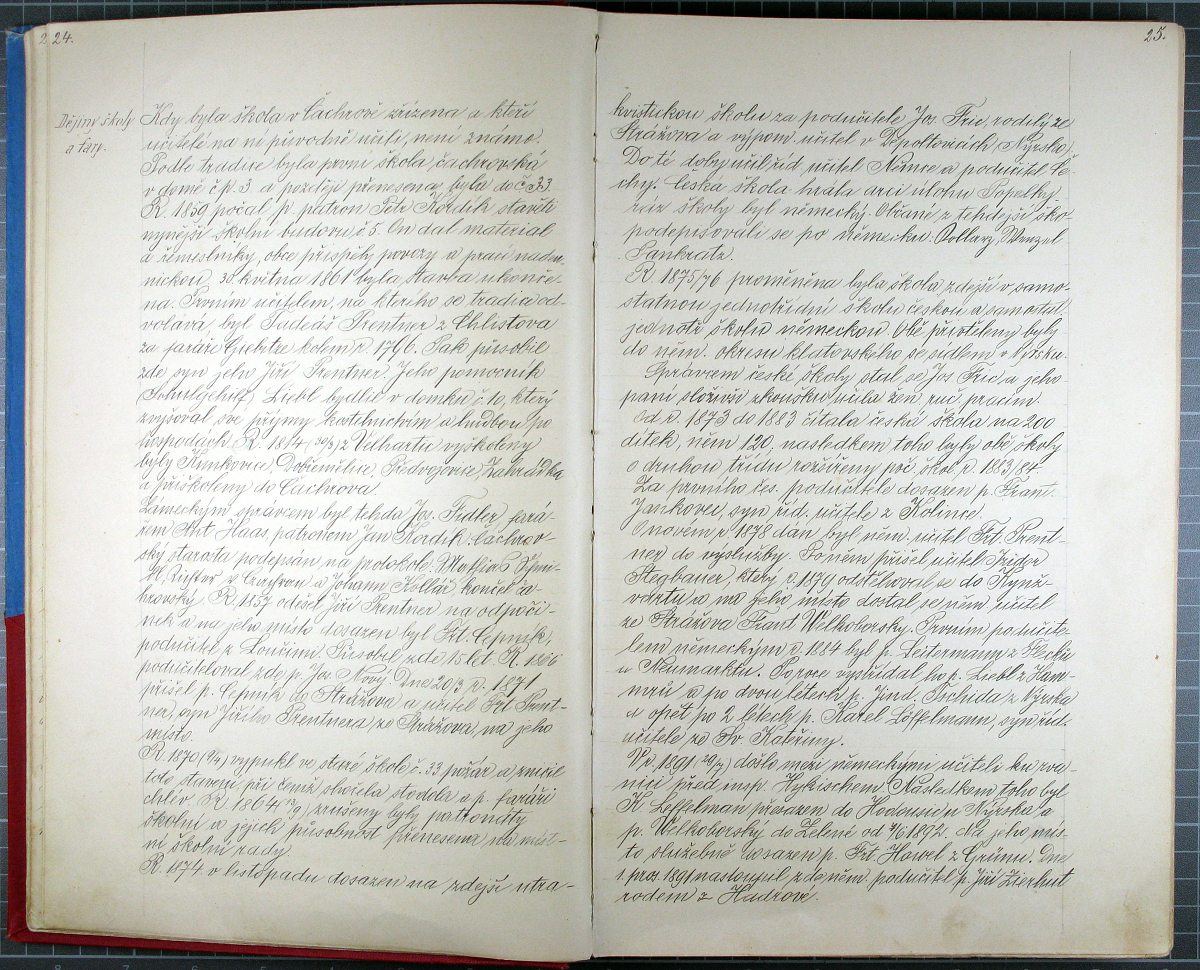 24.
Dějiny školy
a fary.
Kdy byla škola v Čachrově zřízena a kteří
učitelé na ní původně učili, není známo.
Podle tradice byla první škola čachrovská
v domě čp. 3 a později přenesena byla do č. 33.
R. 1859 počal p. patron Petr Kordík stavěti
nynější školní budovu č 5. On dal material
a řemeslníky, obce přispěly povozy a prací náde-
nickou. 30. května 1861 byla stavba ukonče-
na. Prvním učitelem, na kterého se tradice od-
volává, byl Tadeáš Prentner z Chlistova
za faráře kolem r. 1796. Pak působil
zde syn jeho Jiří Prentner. Jeho pomocník
Liebl bydlil v domku č 10, který
zvyšoval své příjmy a hudbou po
hospodách. R. 1814 z Velhartic vyškoleny
byly Kunkovice, Dobřemilice, Předvojovice, Zahrádka
a přiškoleny do Čachrova.
Zámeckým správcem byl tehda Jos. Fidler, fará-
řem Ant. Haas, patronem Jan Kordík. Čachrov-
ský starosta podepsán na protokole: Mathias
Richter v a Johann Kollář končel ča-
chrovský. R. 1857 odešel Jiří Prentner na odpoči-
nek a na jeho místo dosazen byl Frt. Čepník,
podučitel z Loučimi. Působil zde 15 let. R. 1866
podučiteloval zde p. Jos. Nový. Dne 20/3 r. 1871
přišel p. Čepník do Strážova a učitel Frt. Prent-
ner, syn Jiřího Prentnera, ze Strážova, na jeho
místo.
R. 1870 vypukl ve staré škole č. 33 požár a zničil
toto stavení při čemž shořela stodola a p. faráři
chlév. R. 1864 zrušeny byly patronáty
školní a jejich působnost přenesena na míst-
ní školní rady.
R. 1874 v listopadu dosazen na zdejší utra-
25.
kvistickou školu za podučitele Jos. Fric, rodilý ze
Strážova a výpom. učitel v Depoltovicích (Nýrsko).
Do té doby učil říd. učitel Němce a podučitel Če-
chy. Česká škola hrála arci úlohu Popelky
ráz školy byl německý. Občané z tehdejší ško
podepisovali se po německu: Pollarz, Wenzel
Pankratz.
R. 1875/76 proměněna byla škola zdejší v samo-
statnou jednotřídní školu českou a samostat.
jednotř. školu německou. Obě přivtěleny byly
do něm. okresu klatovského se sídlem v Nýrsku.
Správcem české školy stal se Jos. Fric a jeho
paní složivši zkoušku učila žen. ruč. pracím.
Od r. 1873 do 1883 čítala česká škola na 200
dítek, něm 120, následkem toho byly obě školy
o druhou třídu rozšířeny poč. škol. r. 1883/84.
Za prvního čes. podučitele dosazen p. Frant.
Jankovec, syn říd. učitele z Kolince.
O novém r. 1878 dán byl něm. učitel Frt. Prent-
ner do výslužby. Poněm přišel učitel Izidor
Stegbauer, který r. 1879 odstěhoval se do Kynž-
vartu a na jeho místo dostal se něm. učitel
ze Strážova Frant. Wilkoborsky. Prvním podučite-
lem německým r. 1884 byl p. Leitermann z
u Neumarktu. Po roce vystřídal ho p. Liebl z Ham-
mrů a po dvou létech p. Jind. Tschida z Nýrska
a opět po 2 létech p. Karel Löffelmann, syn říd.
učitele ze Sv. Kateřiny.
V r. 1891 došlo mezi německými učiteli ku rva-
nici před insp. Hykischem. Následkem toho byl
K. Leffelman přesazen do u Nýrska a
p. Welkoborský do Zelené od 1/6 1892. Na jeho mís-
to služebně dosazen p. Frt. Howel z Grünu. Dne
1. pros 1891 nastoupil zde něm. podučitel p. Jiří Zierhut
rodem z Hadrové.